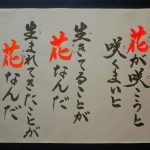 花が咲こうと
咲くまいと
生きてることが
花なんだ
生まれてきたことが
花なんだ